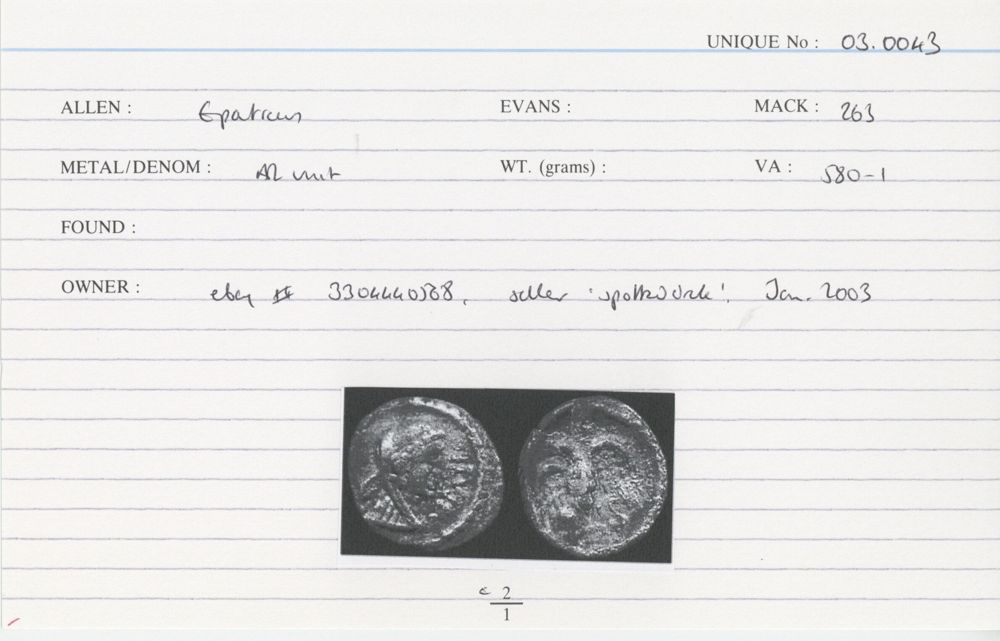 UNIQUE No : 03.0043
ALLEN : Epaticcus EVANS : MACK : 263
METAL/DENOM : AR unit WT. (grams) : VA : 580-1
FOUND :
OWNER : ebay # 3304440568, seller Jan. 2003
c 2
1